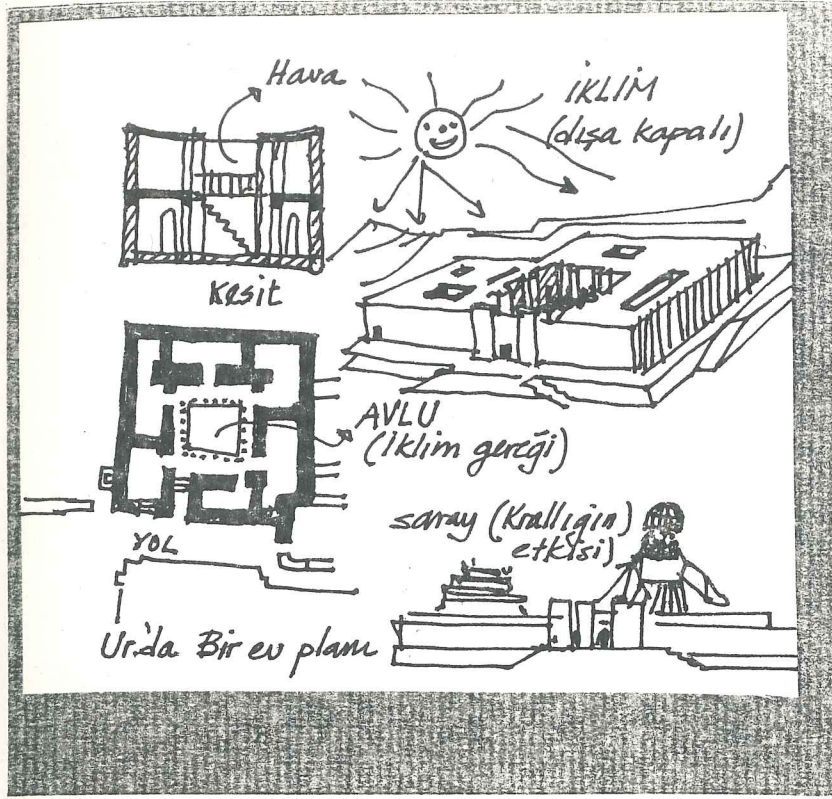 Hava
İKLİM
(dışa kapalı)
Kesit
AVLU
(İklim gereği)
saray (Krallığın)
etkisi)
YOL
Ur'da Bir ev planı